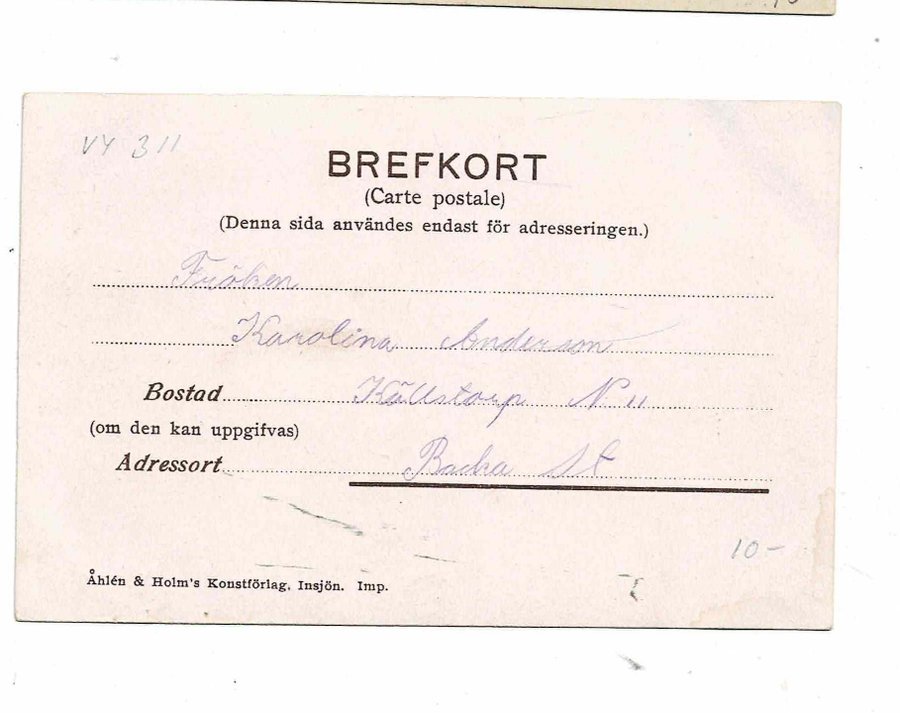 VY 311
BREFKORT
(Carte postale)
(Denna sida användes endast för adresseringen.)
Fröken
Karolina Anderson
Bostad Källstorp N 11
(om den kan uppgifvas)
Adressort Backa St
10-
Åhlén & Holm's Konstförlag, Insjön. Imp.